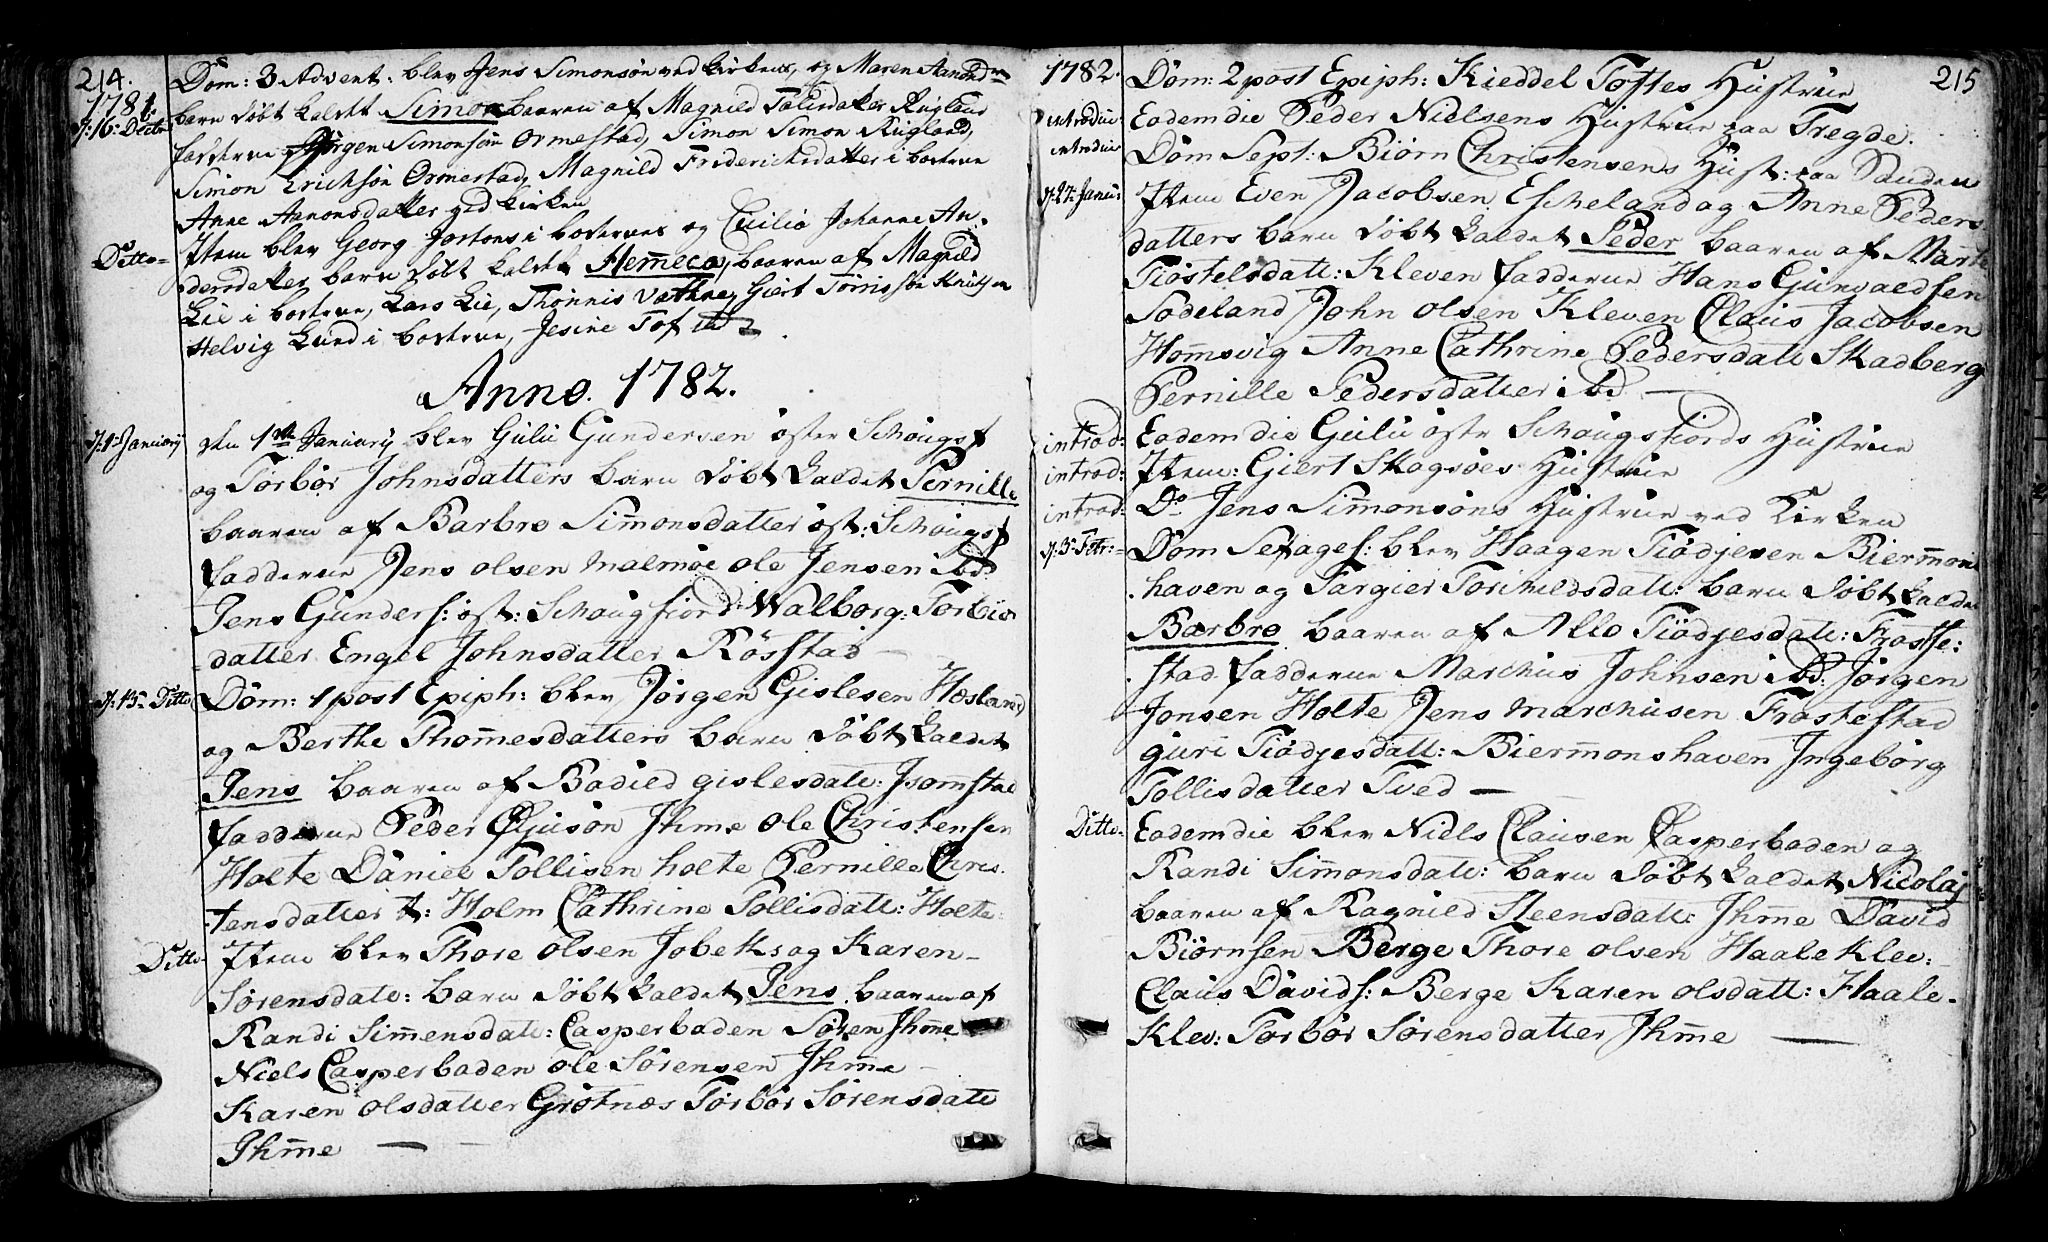 214.
1781.
Dom: 3 Advent: blev Jens Simonsøn ved kirken, og Maren Aanonds
d: 16: Decbr
barn døbt kaldet Simon baaren af Magnild Tolisdatter Rugland
fadderne Jørgen Simonsøn Ormestad, Simon Simon Rugland,
Simon Erichsøn Ormestad, Magnild Friderichsdatter i
Anne Aanonsdatter ved kirken
Ditto-
Item blev Georg i og Cicilia Johanne An-
dersdatters barn døbt kaldet baaren af Magned
Lie i Lars Lie, Thönnis Giert Tönnissøn Knutsen
Helvig Lund i Jesine Toft
Anno. 1782.
d: 1 Januarij
den 1ste Januarij blev Gulu Gundersen öster Schougsf
og Torbör Johnsdatters barn döbt kaldet Pernille
baaren af Barbro Simonsdatter öst: Schougsf
fadderne Jens olsen Malmöe ole Jensen ibd:
Jens Gunders: öst: Schougfiord Walborg: Torbiö
datter Engel Johnsdatter Rösstad —
d: 13 Ditto
Dom: 1 post Epiph: blev Jørgen Gislesen Hæsland
og Berthe Thomesdatters barn döbt kaldet
Jens baaren af Bodied gislesdatt: Isomstad
fadderne Peder Ihme ole Christensen
Holte Daniel Tollisen holte Pernille Chris-
tensdatter t: Holm Cathrine Tollisdatt: Holte
Ditto-
Item blev Thore olsen Jobeks og Karen-
Sörensdatt: barn döbt kaldet Jens baaren af
Randi Simensdatt: Casperbaden Sören Ihme
Niels Casperbaden ole Sörensen Ihme
Karen olsdatter Grötnæs Torbör Sörensdatt
Ihme —
1782.
215
Dom: 2 post Epiph: Kieddel Toftes Hustrue
introdu:
Eodem die Peder Nielsens Hustrue paa Fregde.
introdu
Dom Sept: Biørn Christensens Hust: paa Sanden
d: 27: Janu:
Item Even Jacobsen Escheland og Anne Peders
datters barn döbt kaldet Peder baaren af Marte
Tiöstelsdatt: Kleven fadderne Hans Gunvaldsen
Sodeland John olsen Kleven Claus Jacobsen
Homsvig Anne Cathrine Pedersdatt Skadberg
Pernille Pedersdatter ibd —
introd:
Eodem die Gulu östr Schougsfiords Hustrue
introd:
Item: Giert Skogsöes Hustrue
introd:
Do Jens Simmonsöns Hustrue ved Kirken
d: 3 Febr:-
Dom Sexages: blev Haagen Tiödjesen Biermons
haven og Targier Torkildsdatt: barn döbt kaldet
Barbro baaren af Allo Tiödjesdatt: Froste:
stad fadderne Marchus Johnsen ibd: Jörgen
Jonsen Holte Jens Marchusen Frostestad
guri Tiödjesdatt: Biermonshaven Ingebörg
Tollisdatter Tved —
Ditto-
Eodem die blev Niels Clausen Casperbaden og
Randi Simonsdatt: barn döbt kaldet Nicolaj
baaren af Ragnild Steensdatt: Ihme David
Biørnsen Berge Thore olsen Haaleklev:
Claus Davids: Berge Karen olsdatt: Haale-
Klev: Torbör Sörensdatter Ihme —